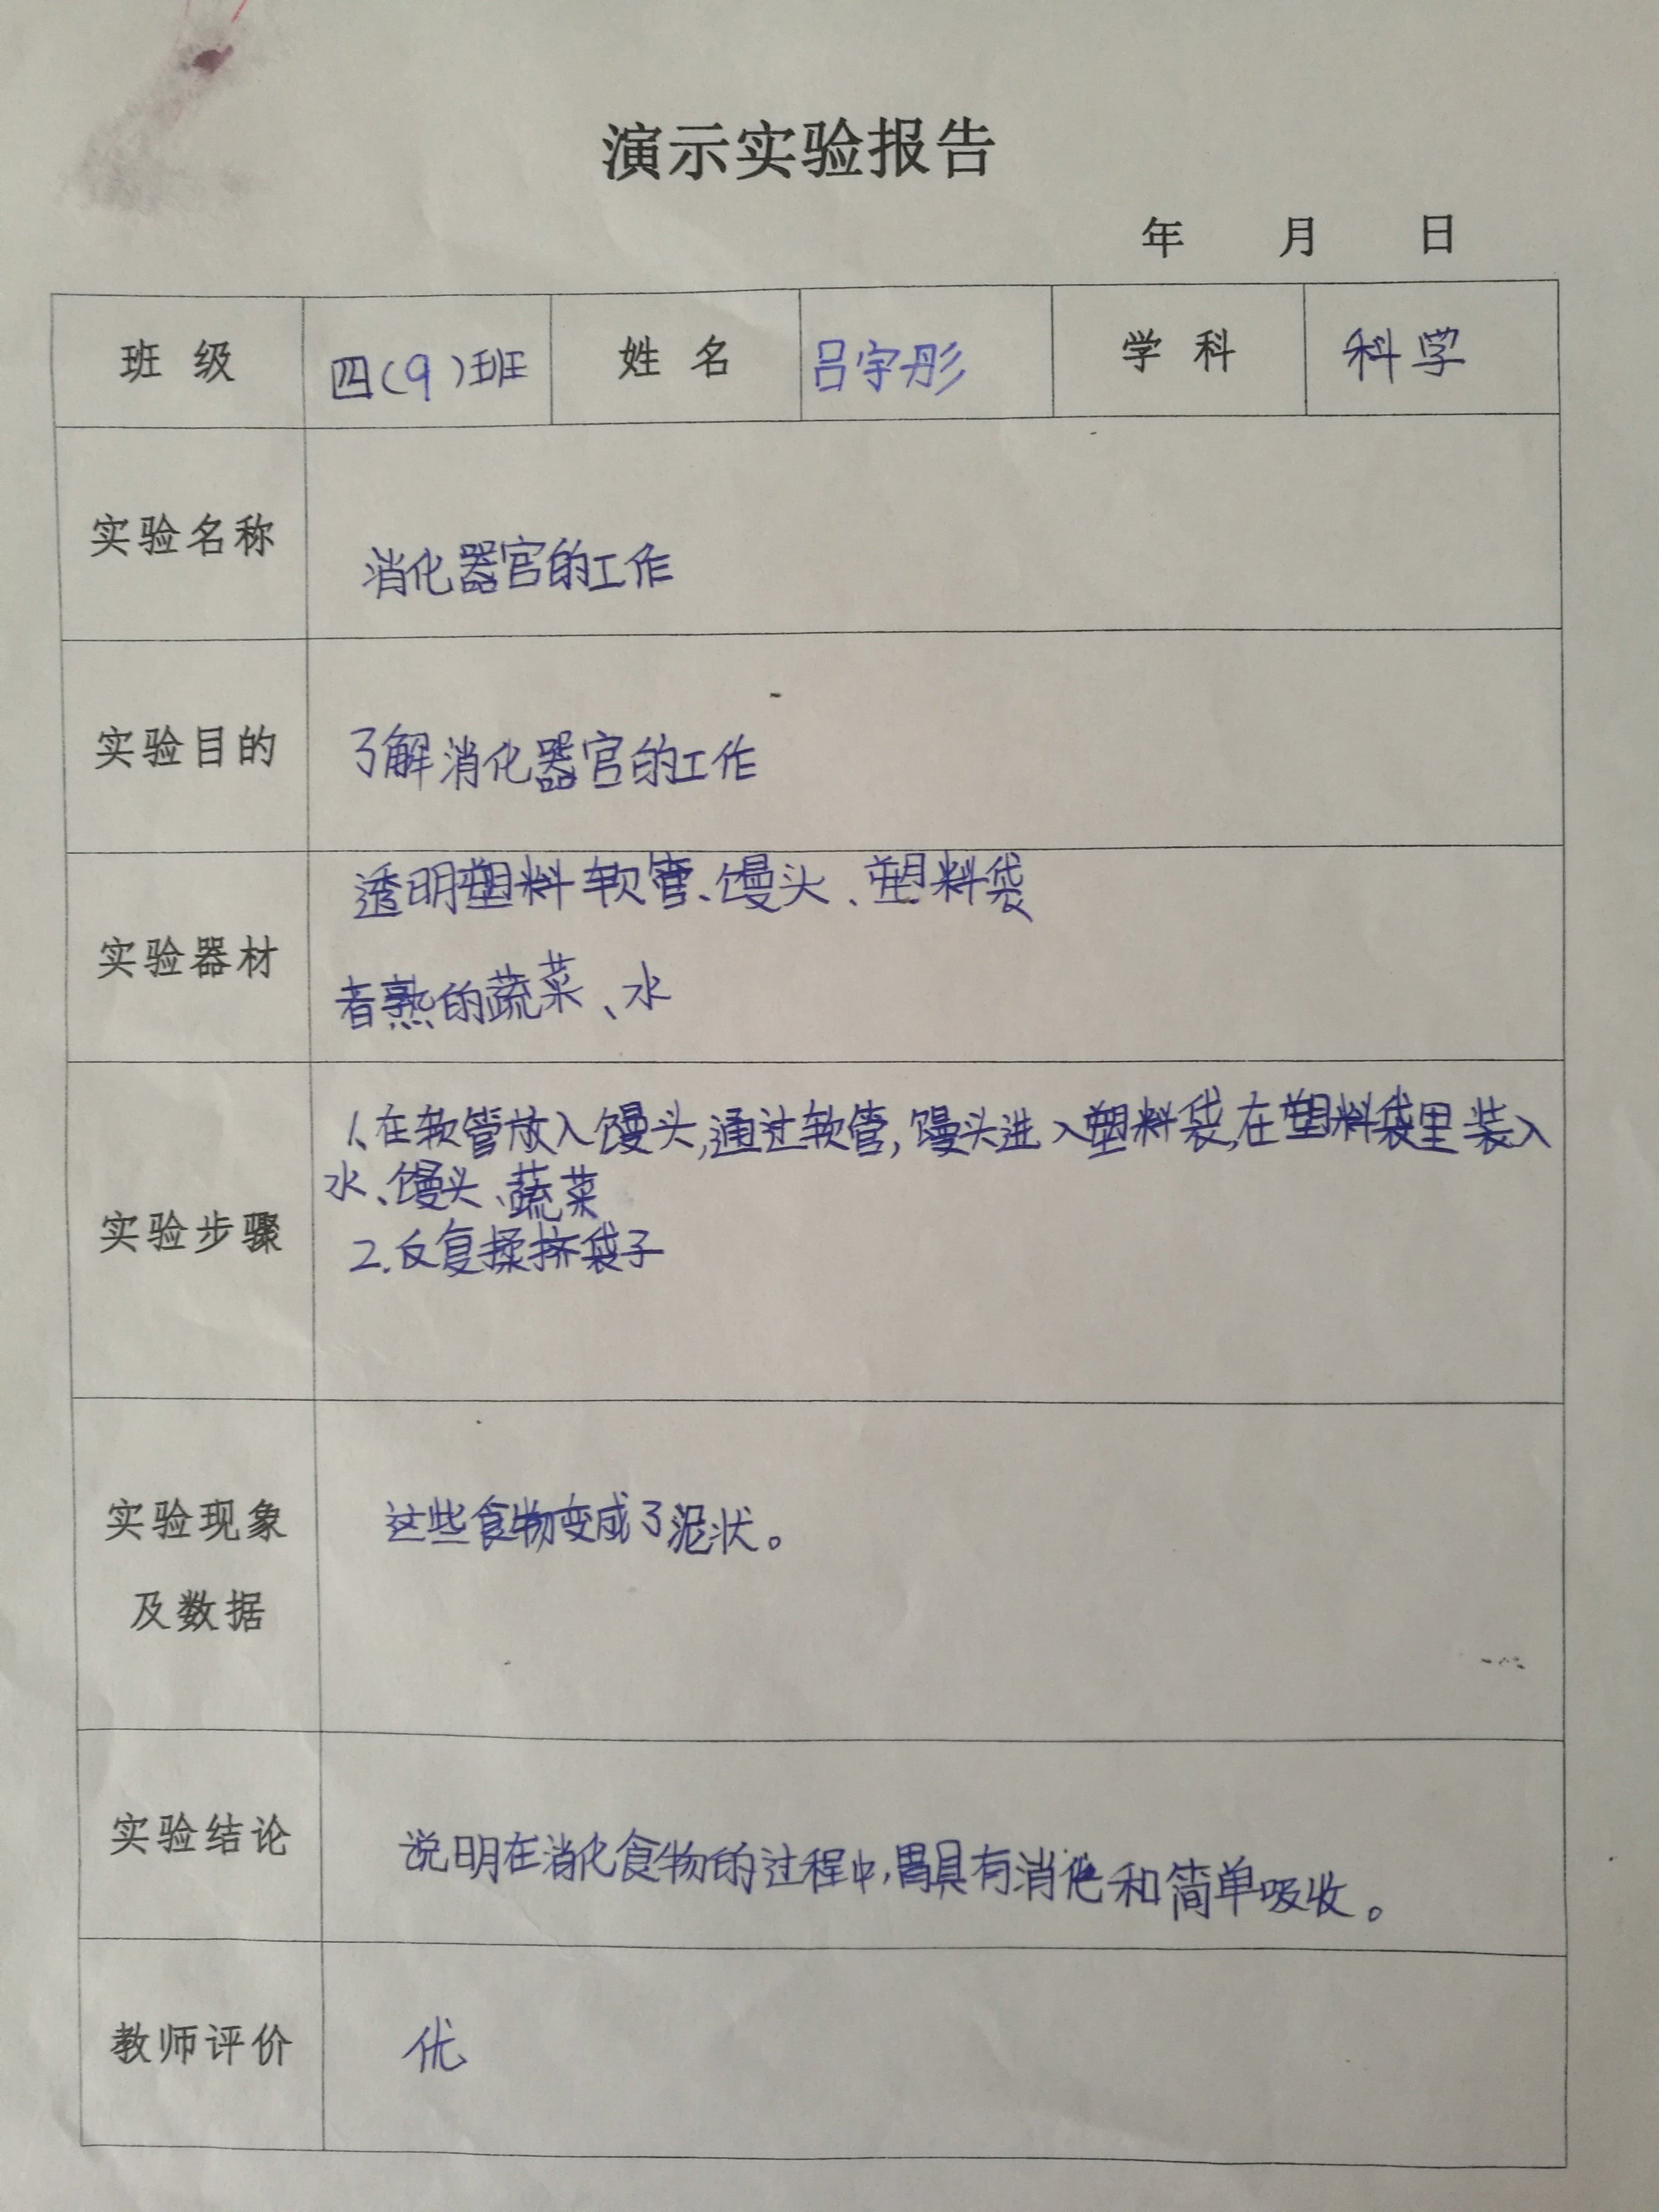 演示实验报告
年 月 日
班级 四(9)班 姓名 吕宇彤 学科 科学
实验名称 消化器官的工作
实验目的 了解消化器官的工作
透明塑料软管、馒头、塑料袋
实验器材
者熟的蔬菜、水
1、在软管放入馒头,通过软管,馒头进入塑料袋,在塑料袋里装入
水、馒头、蔬菜
实验步骤
2.反复揉挤袋子
实验现象 这些食物变成了泥状。
及数据
实验结论 说明在消化食物的过程中,胃具有消化和简单吸收。
教师评价 优